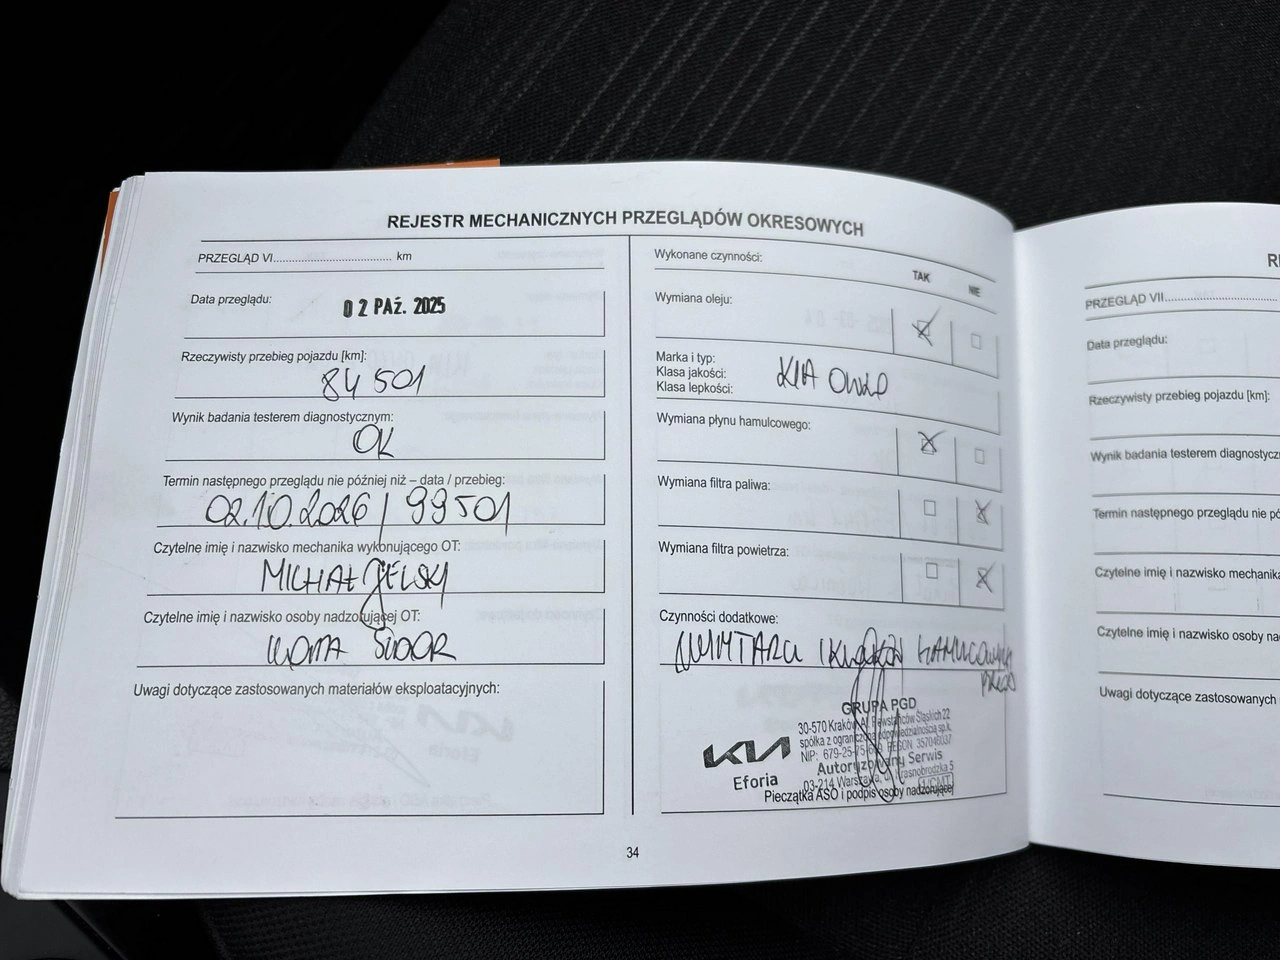 REJESTR MECHANICZNYCH PRZEGLĄDÓW OKRESOWYCH
PRZEGLĄD VI.......................................... km
Data przeglądu:
02 PAŹ. 2025
Rzeczywisty przebieg pojazdu [km]:
84 501
Wynik badania testerem diagnostycznym:
OK
Termin następnego przeglądu nie później niż – data / przebieg:
02.10.2026 / 99501
Czytelne imię i nazwisko mechanika wykonującego OT:
MICHAŁ
Czytelne imię i nazwisko osoby nadzorującej OT:
Uwagi dotyczące zastosowanych materiałów eksploatacyjnych:
Wykonane czynności:
TAK NIE
Wymiana oleju:
Marka i typ:
Klasa jakości:
Klasa lepkości:
KIA
Wymiana płynu hamulcowego:
Wymiana filtra paliwa:
Wymiana filtra powietrza:
Czynności dodatkowe:
GRUPA PGD
30-570 Kraków, Al. Powstańców Śląskich 22
spółka z ograniczoną odpowiedzialnością sp.k.
NIP: 679-25 REGON: 357046037
Autoryzowany Serwis
03-214 Warszawa, ul. Krasnobrodzka 5
KIA
Eforia
Pieczątka ASO i podpis osoby nadzorującej
34
PRZEGLĄD VII
Data przeglądu:
Rzeczywisty przebieg pojazdu [km]:
Wynik badania testerem
Termin następnego przeglądu nie
Czytelne imię i nazwisko
Czytelne imię i nazwisko osoby
Uwagi dotyczące zastosowanych